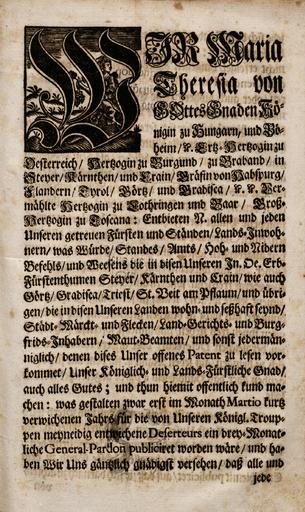 WIR Maria
Theresia von
GOttes Gnaden Kö-
nigin zu Hungarn, und Bö-
heim/ ꝛc. Ertz-Hertzogin zu
Oesterreich/ Hertzogin zu Burgund/ zu Braband/ in
Steyer/ Kärnthen/ und Crain/ Gräfin von Habspurg/
Flandern/ Tyrol/ Görtz/ und Gradisca/ ꝛc. ꝛc. Ver-
mählte Hertzogin zu Lothringen und Baar/ Groß-
Hertzogin zu Toscana: Entbieten N. allen und jeden
Unseren getreuen Fürsten und Ständen/ Lands-Inwoh-
nern/ was Würde/ Standes/ Amts/ Hoh- und Nidern
Befehls/ und Weesens die in disen Unseren In. Oe. Erb-
Fürstenthumen Steyer/ Kärnthen und Crain/ wie auch
Görtz/ Gradisca/ Triest/ St. Veit am Pflaum/ und übri-
gen/ die in disen Unseren Landen wohn- und seßhaft seynd/
Städt- Märckt- und Flecken/ Land-Gerichts- und Burg-
frids-Inhabern/ Maut-Beamten/ und sonst jedermän-
niglich/ denen dises Unser offenes Patent zu lesen vor-
kommet/ Unser Königlich- und Lands-Fürstliche Gnad/
auch alles Gutes; und thun hiemit offentlich kund ma-
chen: was gestalten zwar erst im Monath Martio kurtz
verwichenen Jahrs für die von Unseren Königl. Troup-
pen meyneidig entwichene Deserteurs ein drey-Monat-
liche General-Pardon publiciret worden wäre/ und ha-
ben Wir Uns gäntzlich gnädigst versehen/ daß alle und
jede